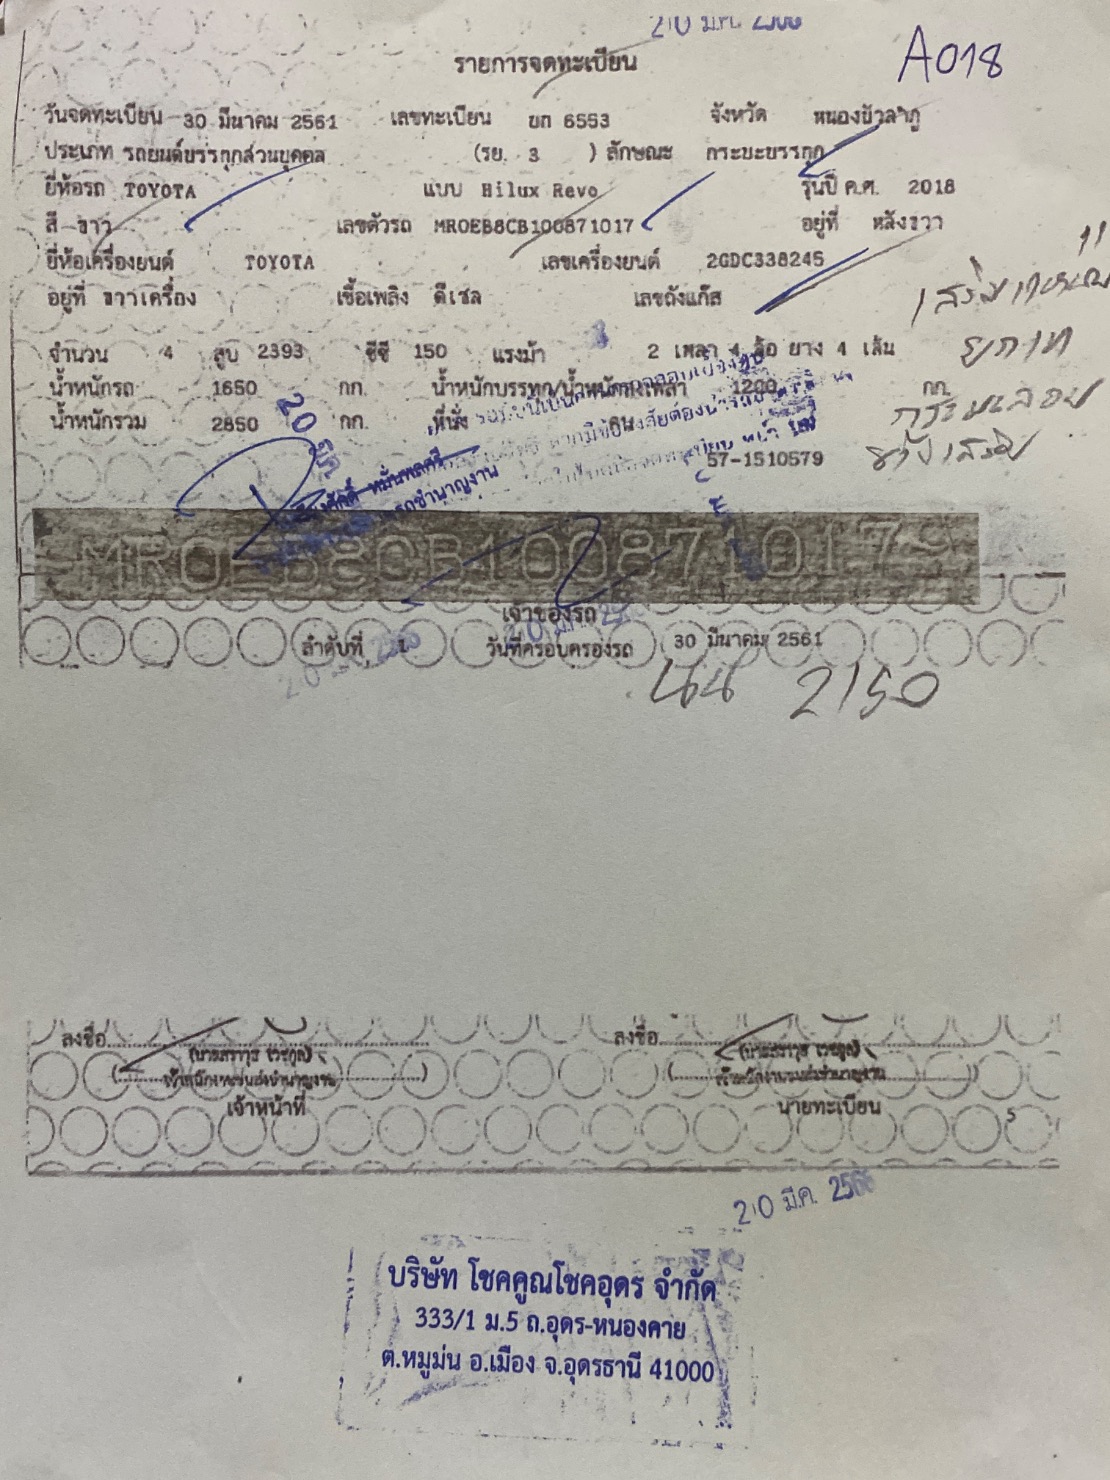 20 มี.ค. 2566
A018
รายการจดทะเบียน
วันจดทะเบียน 30 มีนาคม 2561 เลขทะเบียน บก 6553 จังหวัด หนองบัวลำภู
ประเภท รถยนต์บรรทุกส่วนบุคคล (รย. 3 ) ลักษณะ กระบะบรรทุก
ยี่ห้อรถ TOYOTA แบบ Hilux Revo รุ่นปี ค.ศ. 2018
สี ขาว เลขตัวรถ MR0EB8CB100871017 อยู่ที่ หลังขวา
ยี่ห้อเครื่องยนต์ TOYOTA เลขเครื่องยนต์ 2GDC338245
อยู่ที่ ขวาเครื่อง เชื้อเพลิง ดีเซล เลขถังแก๊ส
จำนวน 4 สูบ 2393 ซีซี 150 แรงม้า 2 เพลา 4 ล้อ ยาง 4 เส้น
น้ำหนักรถ 1650 กก. น้ำหนักบรรทุก/น้ำหนักลงเพลา 1200 กก.
น้ำหนักรวม 2850 กก. ที่นั่ง คน
57-1510579
20 มี.ค.
MR0EB8CB100871017
เจ้าของรถ
ลำดับที่ 1 วันที่ครอบครองรถ 30 มีนาคม 2561
20 มี.ค.
นน 2150
ลงชื่อ ลงชื่อ
เจ้าหน้าที่ นายทะเบียน
5
20 มี.ค. 2566
บริษัท โชคคูณโชคอุดร จำกัด
333/1 ม.5 ถ.อุดร-หนองคาย
ต.หมูม่น อ.เมือง จ.อุดรธานี 41000